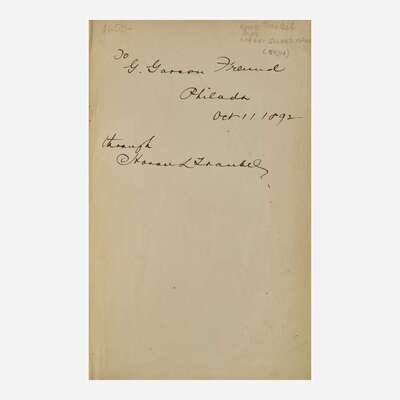 To
G. Garson Freund
Philada
Oct 11 1892
through
Horace L Traubel